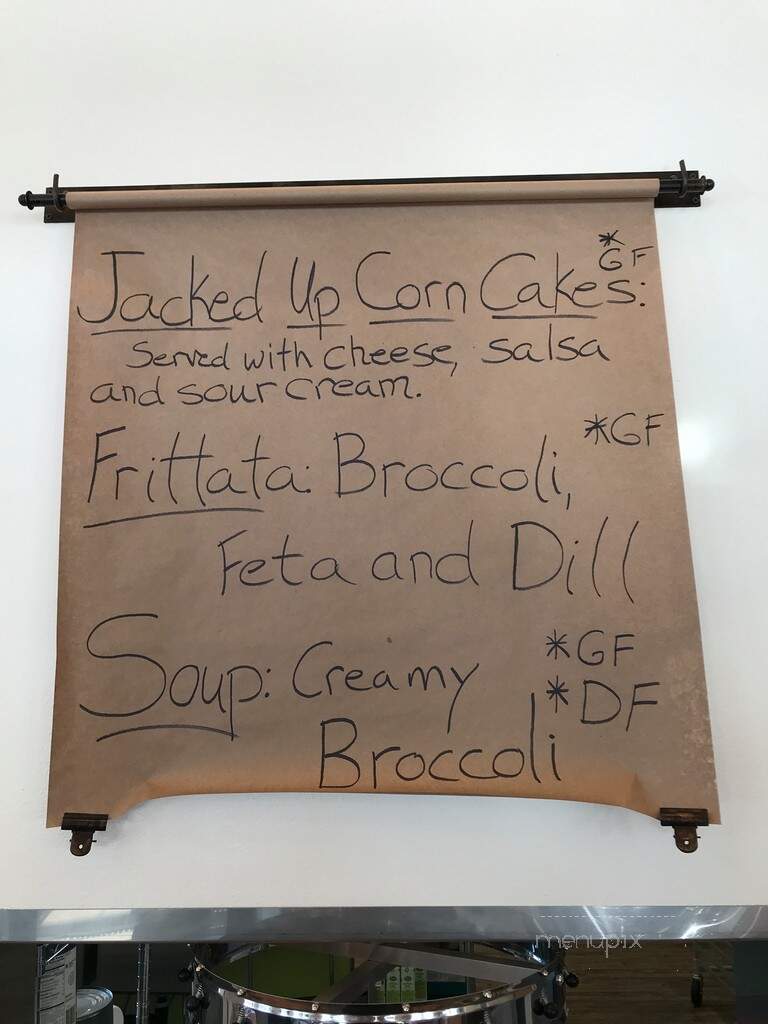 *GF
Jacked Up Corn Cakes:
Served with cheese, salsa
and sour cream.
*GF
Frittata: Broccoli,
Feta and Dill
Soup: Creamy *GF
*DF
Broccoli
menupix